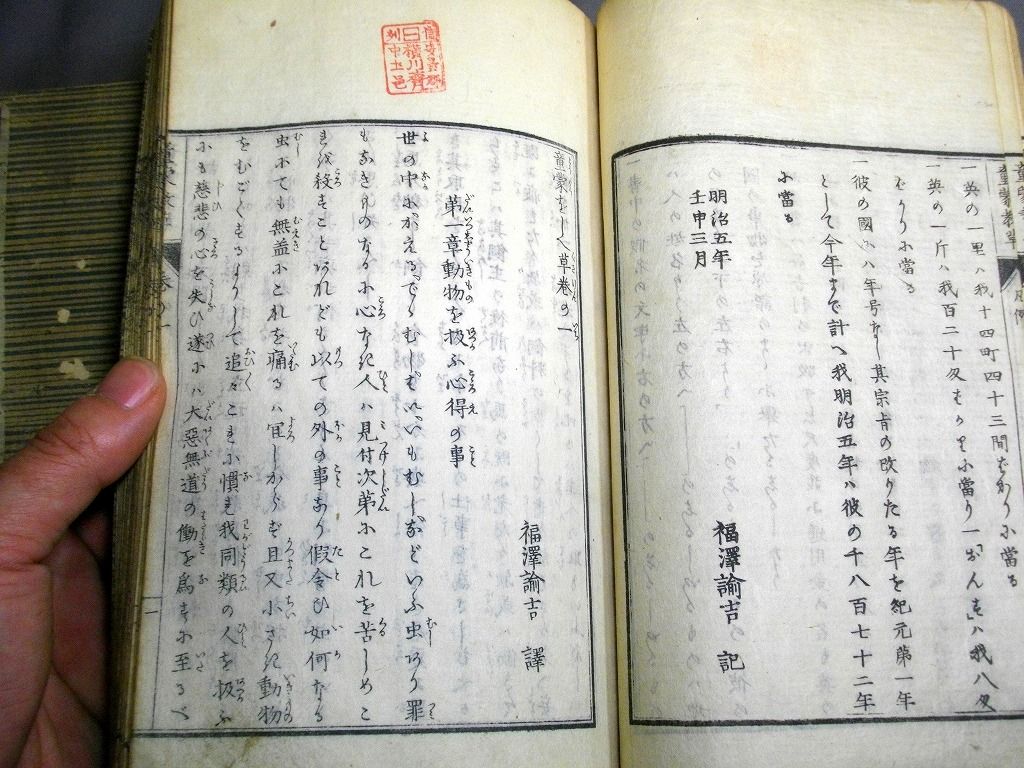 一英の一里ハ我十四町四十三間ばかりに當る
一英の一斤ハ我百二十匁ばかりに當り一「おんす」ハ我八匁
ばかりに當る
一彼の國にハ年号なし其宗旨の改りたる年を紀元第一年
として今年まで計へ我明治五年ハ彼の千八百七十二年
に當る
明治五年
壬申三月
福澤諭吉 記
童蒙をしへ草巻の一
福澤諭吉 譯
第一章動物を扱ふ心得の事
世の中にがえるでらむしばいいもむしなどいふ虫あり罪
もなきものなるに心なき人ハ見付次第にこれを苦しめこ
れを殺すことあれども以ての外の事なり假令ひ如何なる
虫にても無益にこれを痛るハ宜しからず且又小さき動物
をむごくするよりして追々これに慣れ我同類の人を扱ふ
にも慈悲の心を失ひ遂にハ大惡無道の働を為すに至るべ